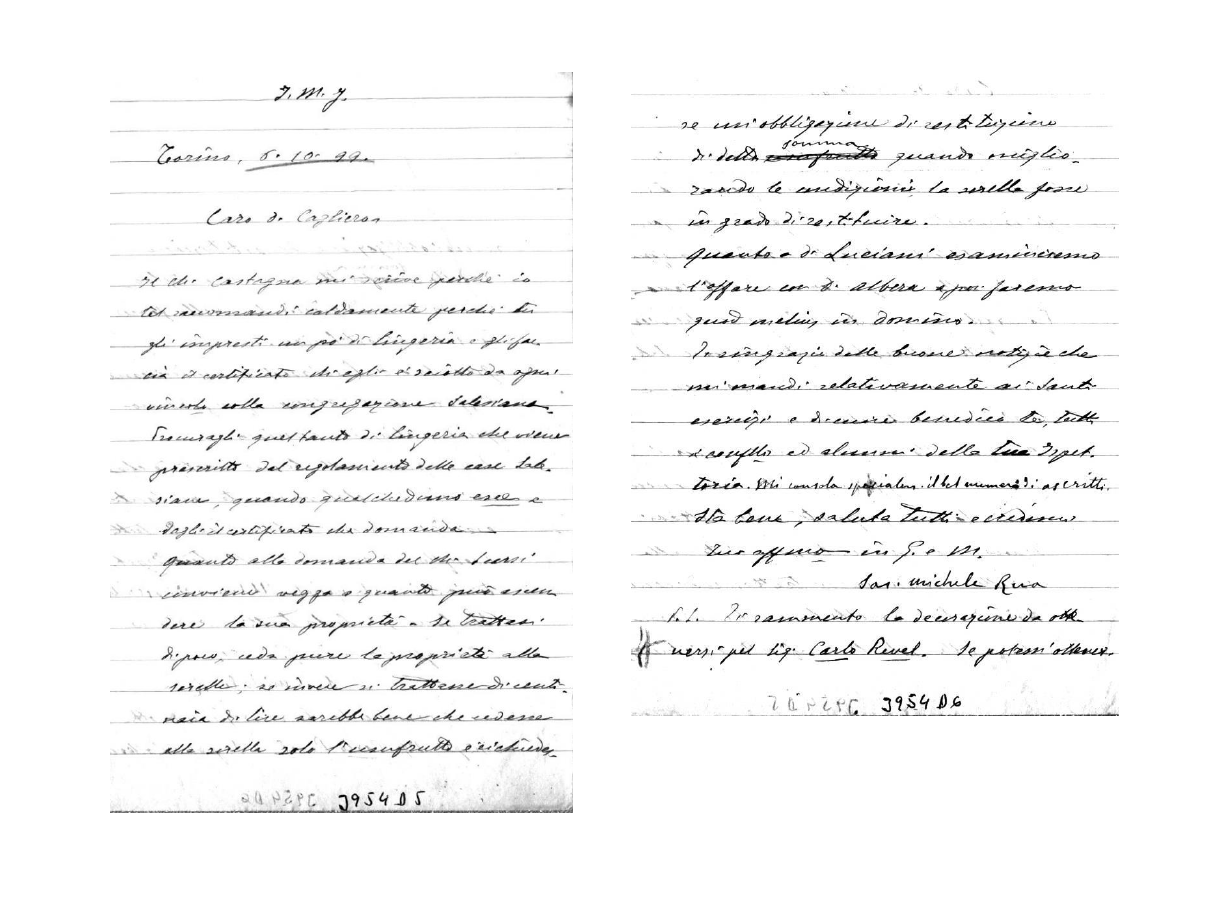 J. M. J.
Torino, 6. 10. 99.
Caro D. Cagliero
Il ch. Castagna mi scrive perchè io
ti raccomandi caldamente perchè tu
gli impresti un pò di lingeria e gli fac
cia il certificato ch'egli è sciolto da ogni
vincolo colla congregazione Salesiana.
Procuragli quel tanto di lingeria che viene
prescritto dal regolamento delle case Sale-
siane, quando qualcheduno esce e
dagli il certificato che domanda
quanto alla domanda del
conviene vegga a quanto può ascen
dere la sua proprietà. Se trattasi
di poco, ceda pure la proprietà alla
sorella; se invece si trattasse di centi-
naia di lire sarebbe bene che cedesse
alla sorella solo l'usufrutto e richiedes-
J954 D5
se un'obbligazione di restituzione
di detta usufrutto somma quando miglio-
rando le condizioni la sorella fosse
in grado di restituire.
quanto a D. Luciani esamineremo
l'affare con D. Albera e poi faremo
quod melius in Domino.
Ti ringrazio delle buone notizie che
mi mandi relativamente ai Santi
esercizi e di cuore benedico te, tutti
i confllo ed alunni della tua Ispet-
toria. Mi consola specialm. il bel numero di ascritti.
Sta bene, saluta tutti e credimi
Tuo affmo in G. e M.
Sac. Michele Rua
P.S. Ti rammento la decorazione da otte
nersi pel Sig. Carlo Revel. Se potessi ottener.
J954 D6